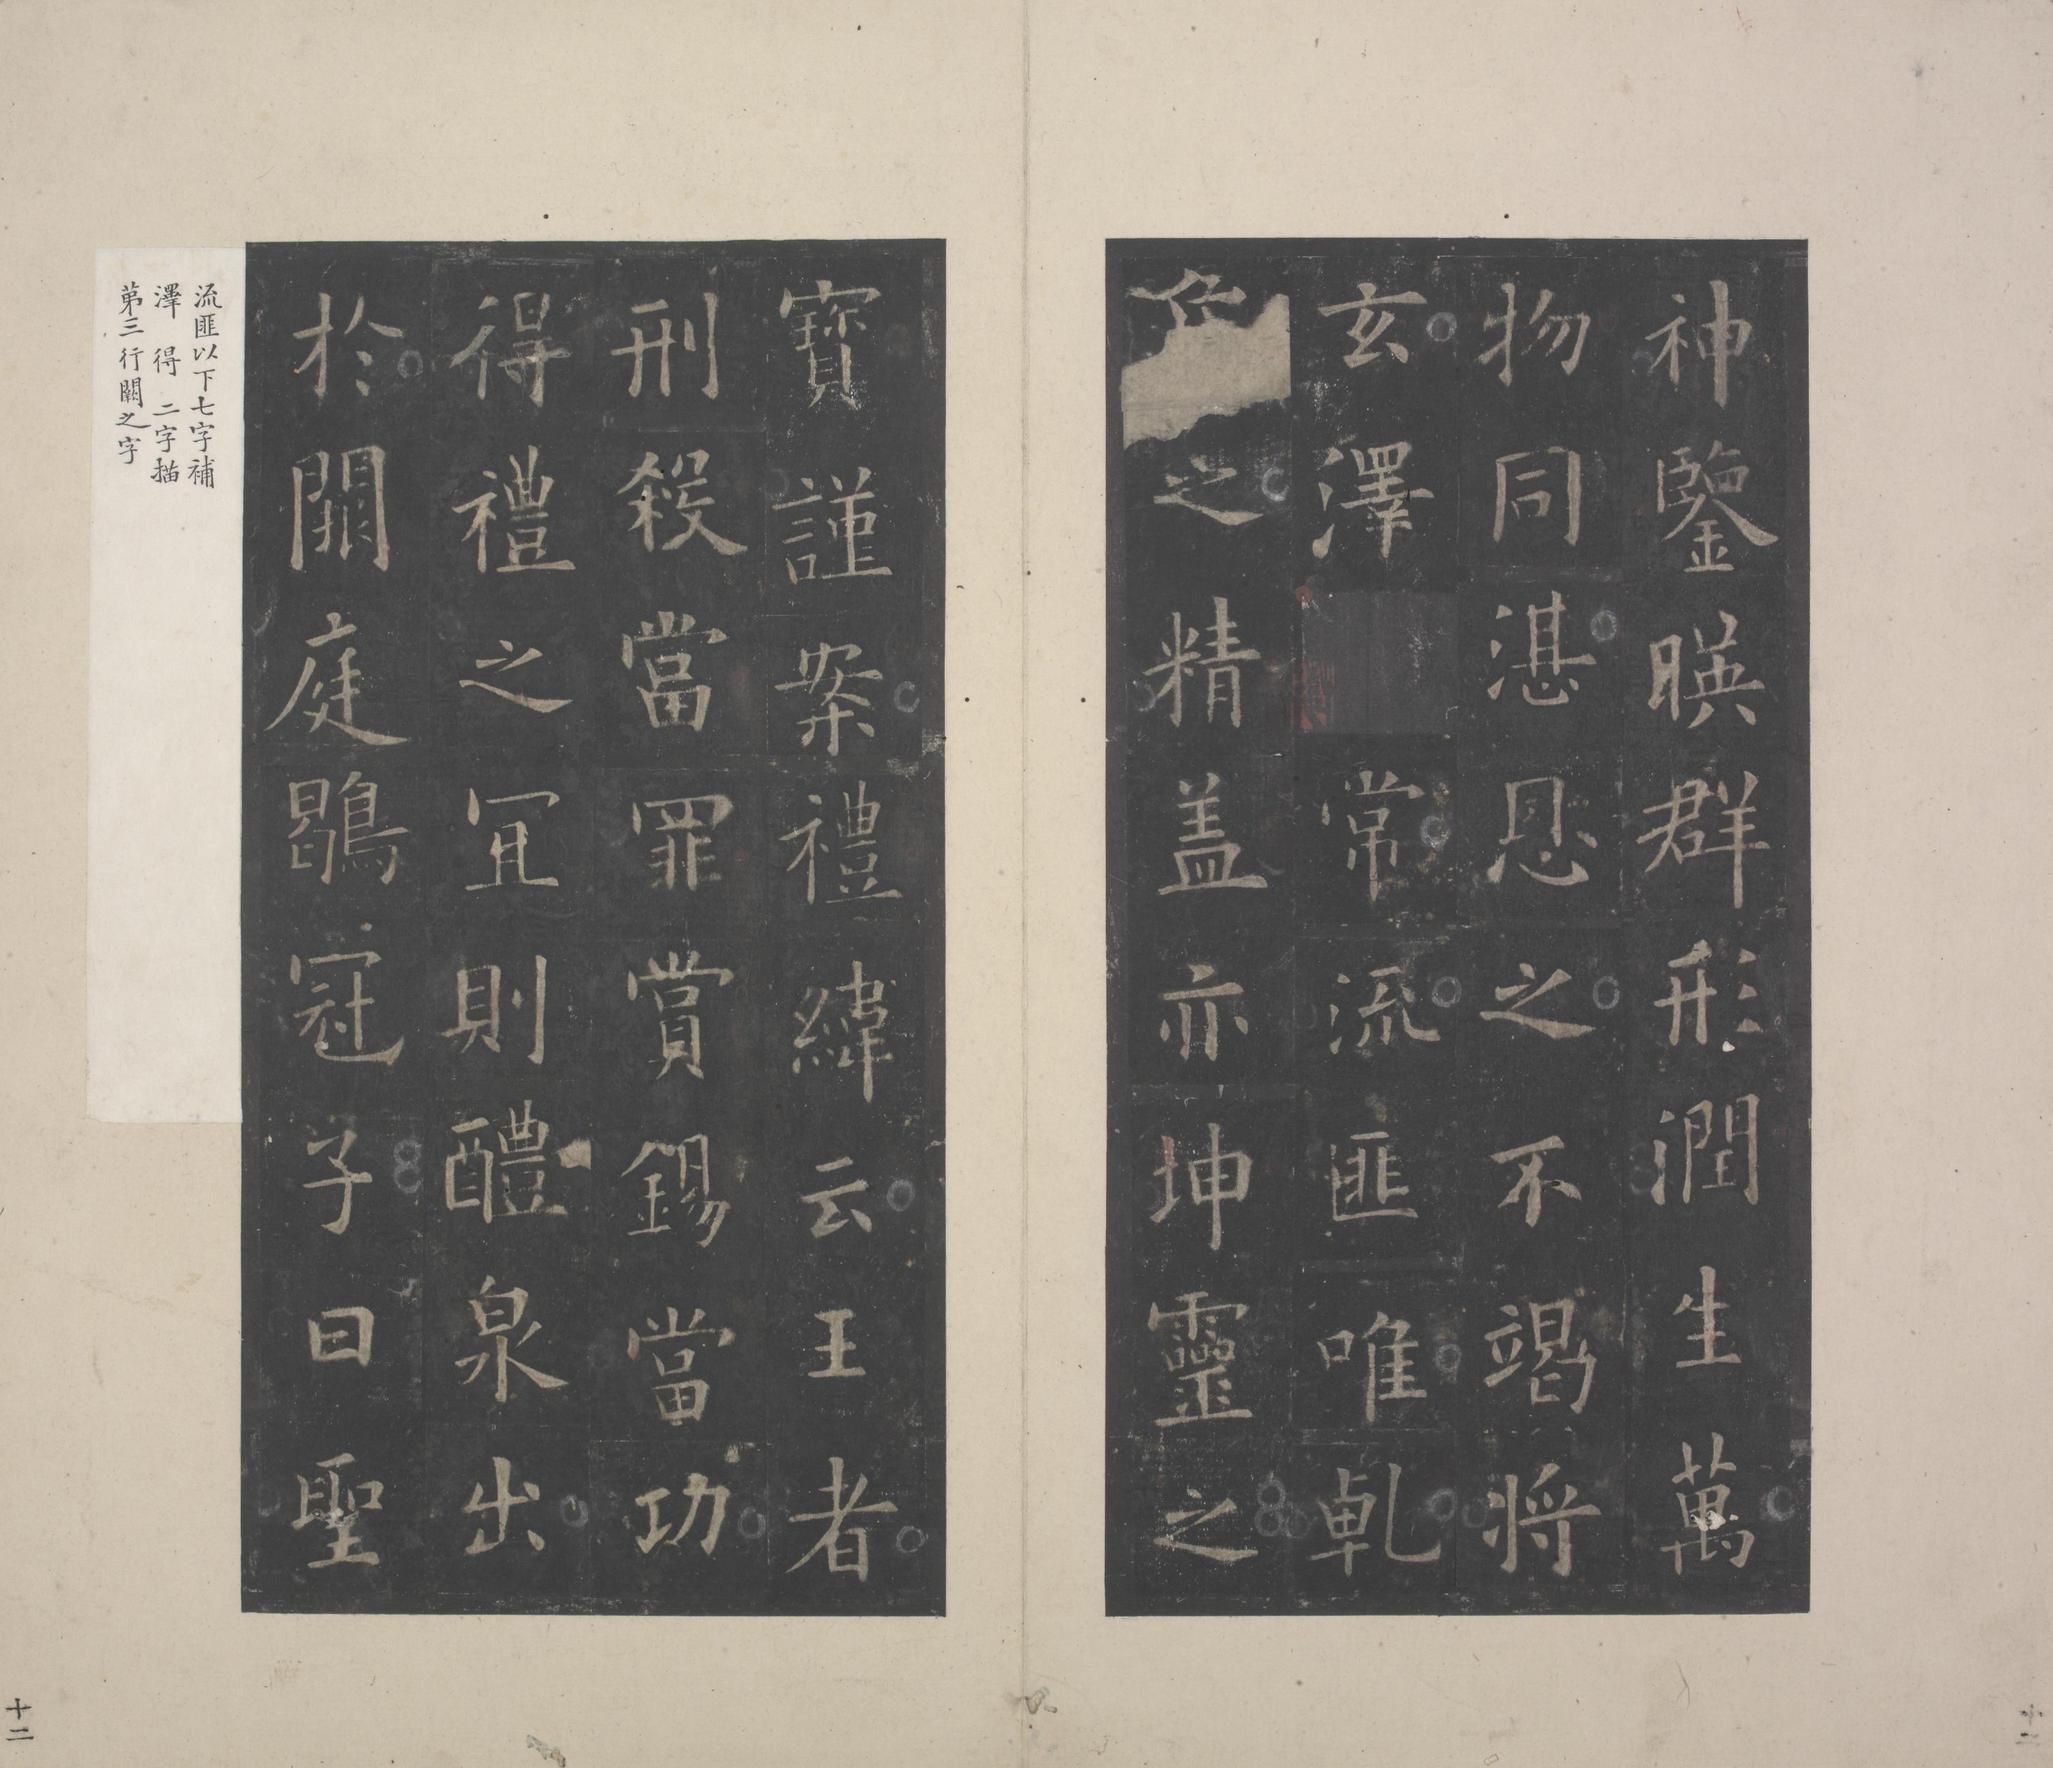 神鑒暎群形潤生萬
物同湛恩之不竭将
玄澤常流匪唯乹
之精盖亦坤靈之
寶謹案禮緯云王者
刑殺當罪賞錫當功
得禮之冝則醴泉出
於闕庭鶡冠子曰聖
流匪以下七字補
澤 得 二字描
第三行闕之字
十二